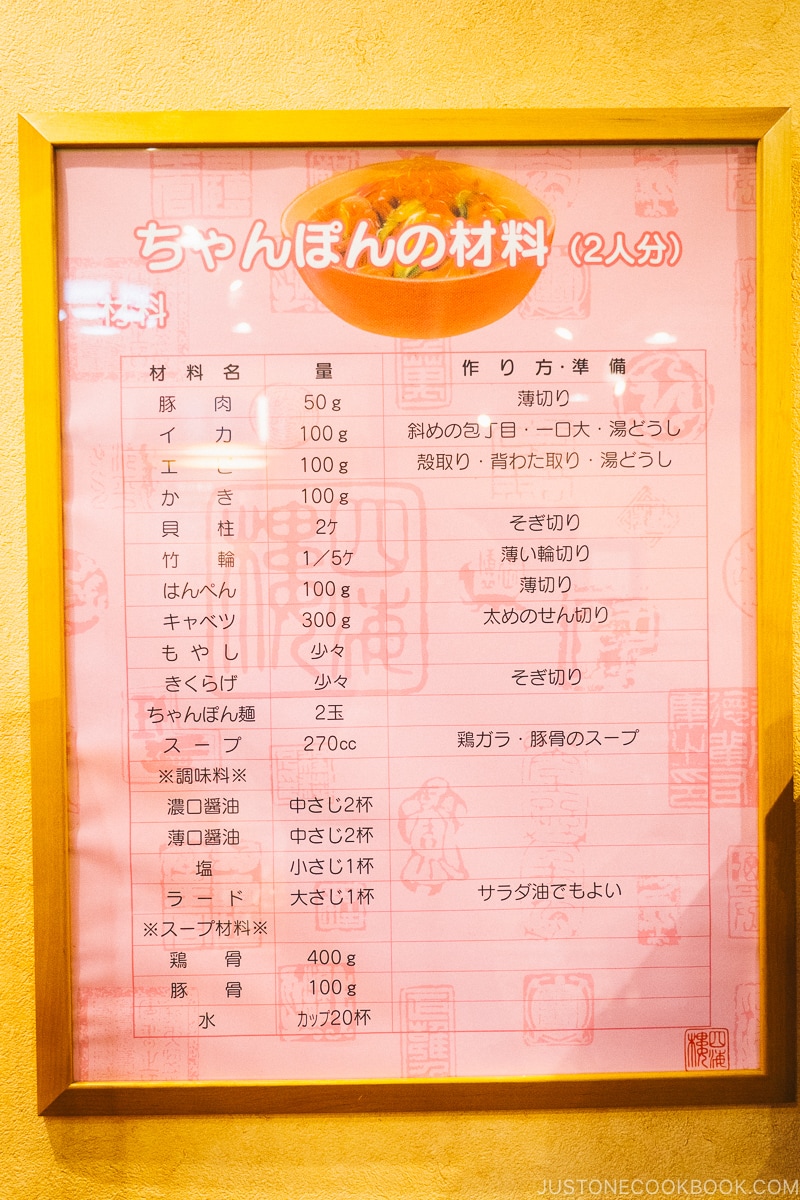 ちゃんぽんの材料（2人分）
材料
材料名 量 作り方・準備
豚肉 50g 薄切り
イカ 100g 斜めの包丁目・一口大・湯どうし
エビ 100g 殻取り・背わた取り・湯どうし
かき 100g
貝柱 2ケ そぎ切り
竹輪 1／5ケ 薄い輪切り
はんぺん 100g 薄切り
キャベツ 300g 太めのせん切り
もやし 少々
きくらげ 少々 そぎ切り
ちゃんぽん麺 2玉
スープ 270cc 鶏ガラ・豚骨のスープ
※調味料※
濃口醤油 中さじ2杯
薄口醤油 中さじ2杯
塩 小さじ1杯
ラード 大さじ1杯 サラダ油でもよい
※スープ材料※
鶏骨 400g
豚骨 100g
水 カップ20杯
四海樓
JUSTONECOOKBOOK.COM